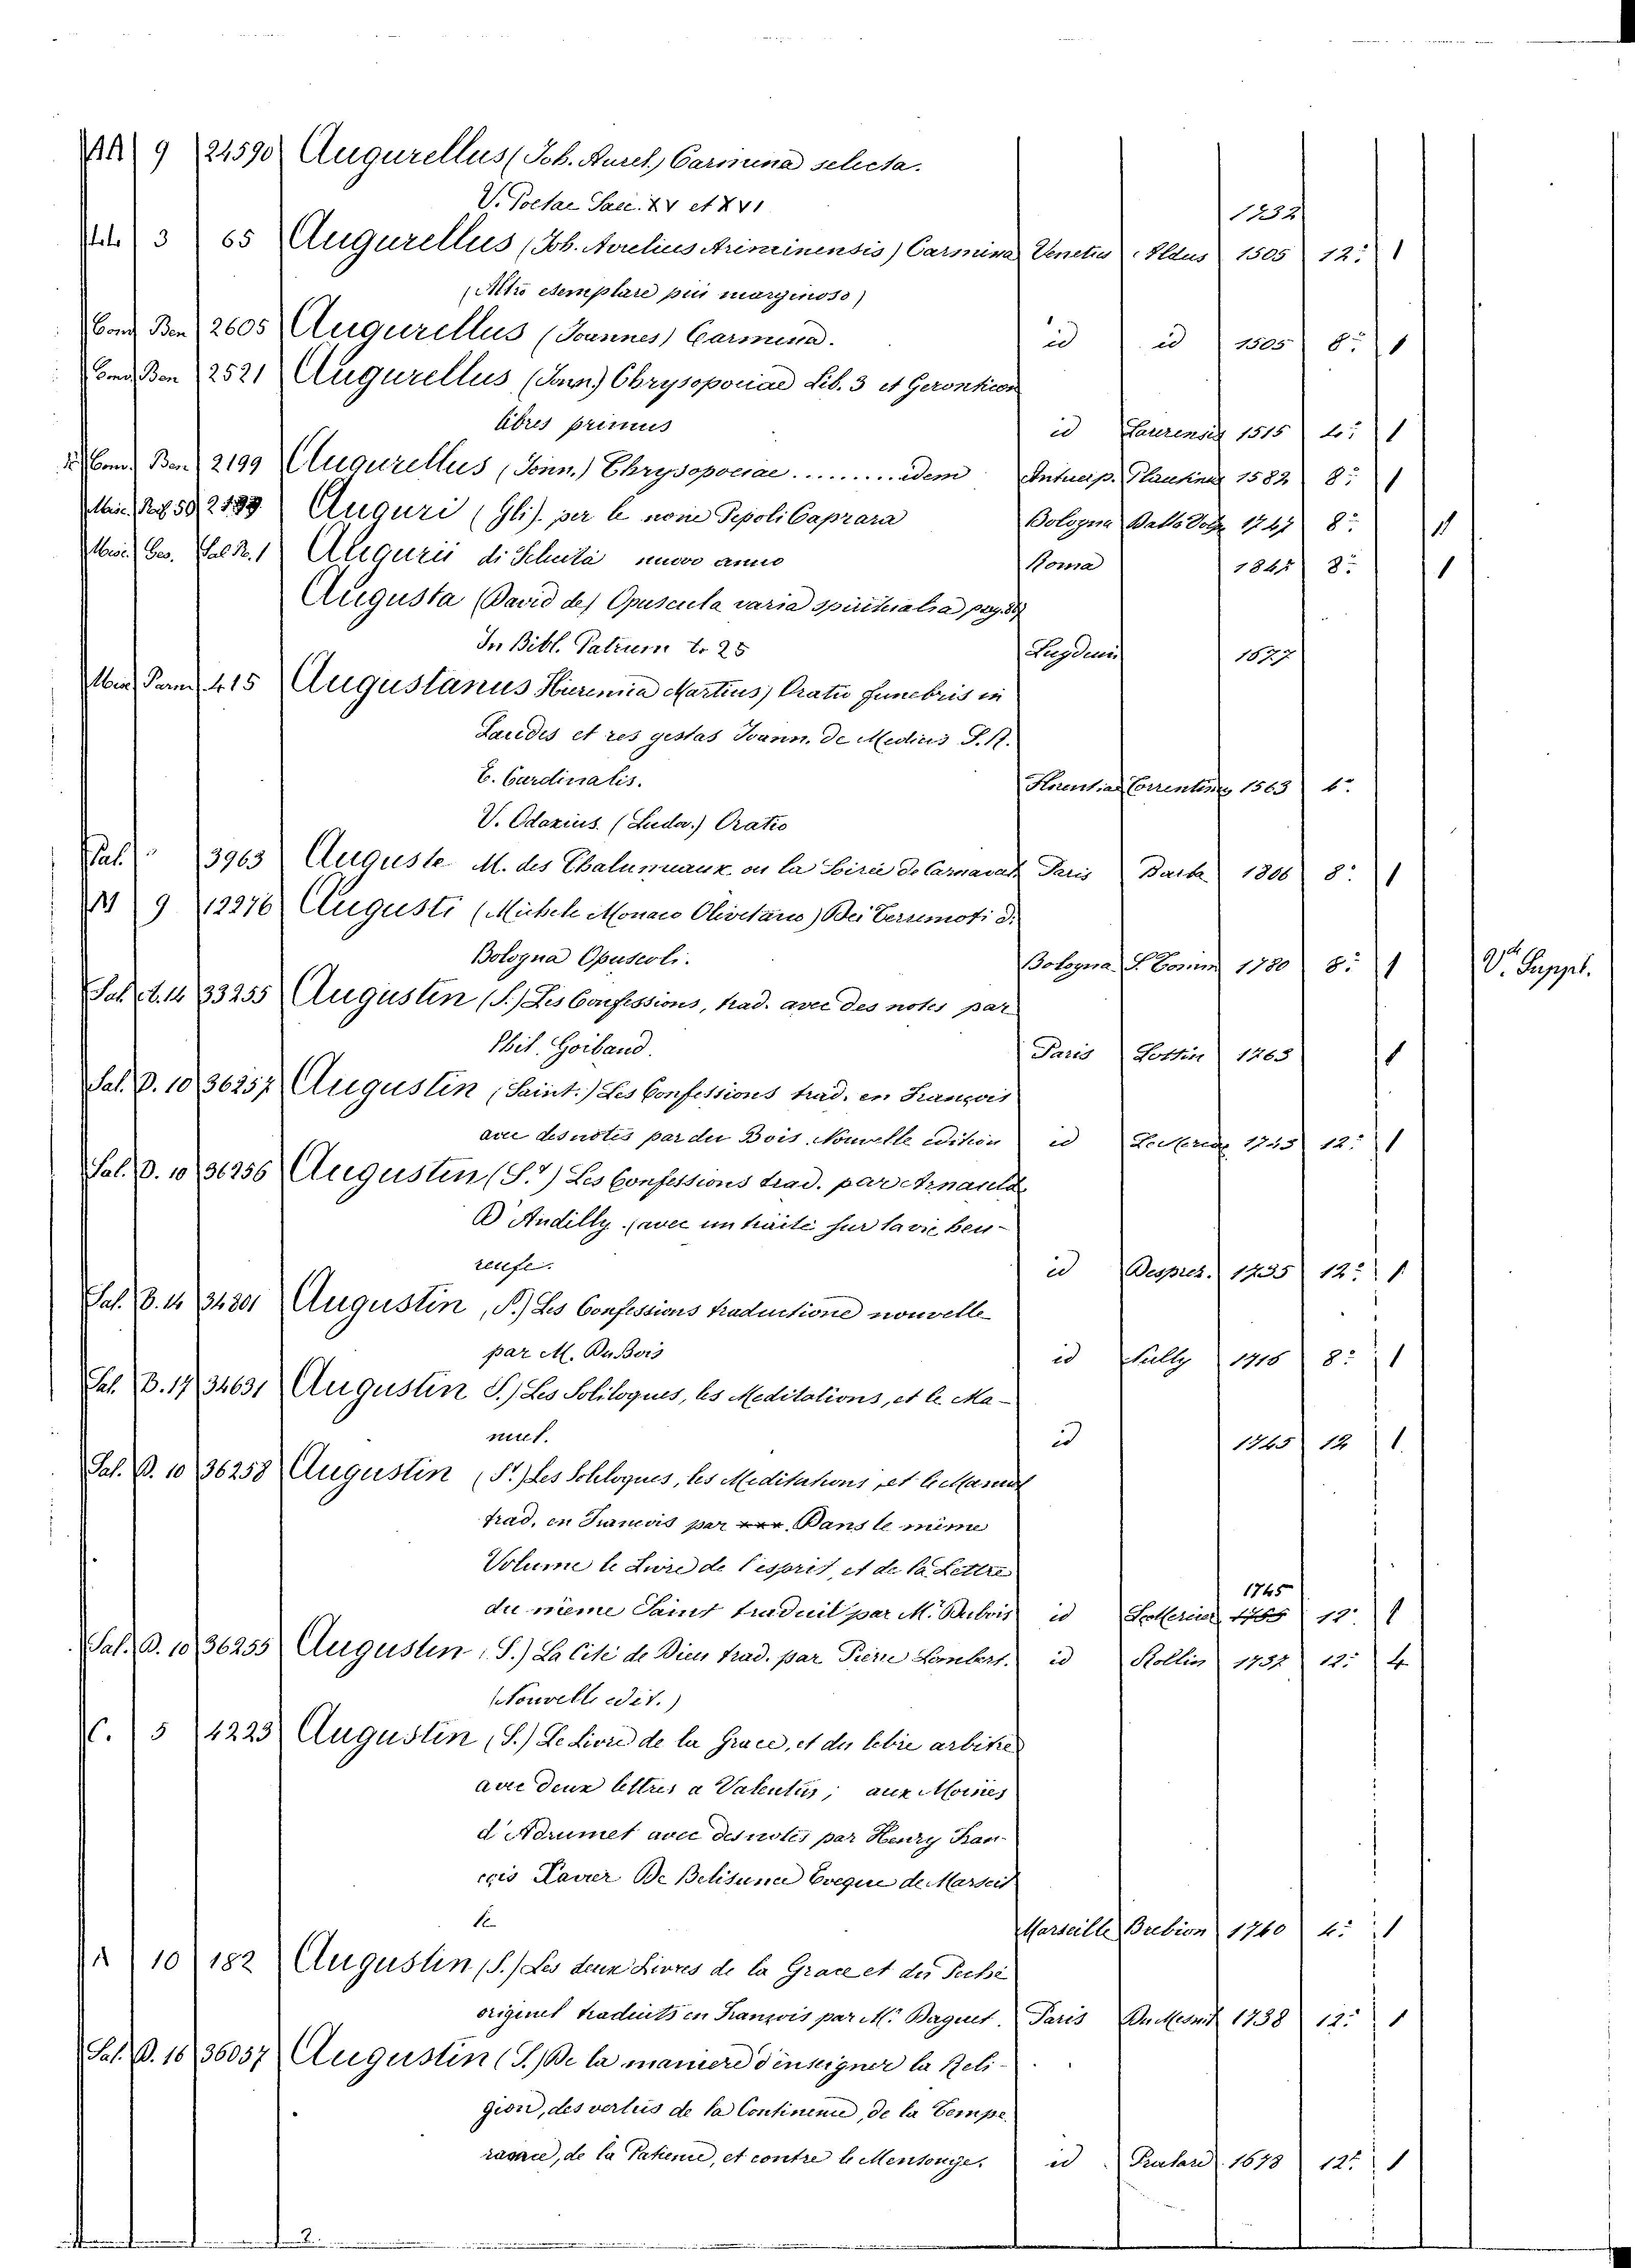 AA 9 24590 Augurellus (Joh. Aurel.) Carmina selecta.
V. Poetae Saec. XV et XVI 1732
3 65 Augurellus (Joh. Aurelius Ariminensis) Carmina Venetiis Aldus 1505 12:° 1
(Altro esemplare più marginoso)
Cond Ben 2605 Augurellus (Joannes) Carmina. id id 1505 8:° 1
Cond Ben 2521 Augurellus (Joan.) Chrysopoeiae Lib. 3 et Geronticon
libres primus id 1515 4:° 1
Cond Ben 2199 Augurellus (Joan.) Chrysopoeiae ......... idem Antuerp. Plautinus 1582 8:° 1
Misc. 59 Auguri (Gli) per le nome Pepoli Caprara Bologna 1747 8:° 1
Misc. Ges. Sal N. 1 Augurii di nuovo anno Roma 8:° 1
Augusta (David de) Opuscula varia spiritualia pag.
In Bibl. Patrum to 25 Lugduni 1677
Misc Parm 415 Augustanus Hieremia Martius) Oratio funebris in
Laudes et res gestas Joann. de Medicis S. R.
E. Cardinalis. Florentiae Torrentinus 1563 4:°
V. Odaxius (Ludov.) Oratio
Pal. 3963 Auguste M. des Chalumeaux ou la Soirée de Carnaval Paris Barba 1806 8:° 1
9 12276 Augusti (Michele Monaco Olivetano) Dei Terremoti di
Bologna Opuscoli. Bologna S. Tomm 1780 8:° 1 V. Suppl.
Sal. A. 14 33235 Augustin (S.) Les Confessions, trad. avec des notes par
Phil. Goiband. Paris Lottin 1763 1
Sal. D. 10 36257 Augustin (Saint.) Les Confessions trad. en François
avec des notes par du Bois. Nouvelle edition id 1743 12:° 1
Sal. D. 10 36256 Augustin (S.t) Les Confessions trad. par Arnauld
D'Andilly (avec un traité sur la vie heu-
reuse. id Desprez. 1735 12:° 1
Sal. B. 14 34801 Augustin (S.) Les Confessions traductione nouvelle
par M. DuBois id 1716 8:° 1
Sal. B. 17 34631 Augustin S.) Les Soliloques, les Meditations, et le Ma-
nuel. id 1745 12 1.
Sal. D. 10 36258 Augustin (S.t) Les Soliloques, les Meditations et le Manuel
trad. en François par ***. Dans le même
Volume le Livre de l'esprit, et de la Lettre
1745
du même Saint traduit par M. Dubois id 12:° 1
Sal. D. 10 36255 Augustin (S.) La Cité de Dieu trad. par Pierre Lombert. id Rollin 1737 12:° 4
(Nouvelle edit.)
C. 5 4223 Augustin (S.) Le Livre de la Grace, et du libre arbitre
avec deux lettres a Valentin, aux Moines
d'Adrumet avec des notes par Henry Fran-
çois Xavier De Belisunce Eveque de Marseil
le Marseille Brebion 1740 4:° 1
A 10 182 Augustin (S.) Les deux Livres de la Grace et du Peché
originel traduits en François par M. Baguet. Paris DuMesnil 1738 12:° 1
Sal. D. 16 36037 Augustin (S.) De la maniere d'enseigner la Reli-
gion, des vertus de la Continence, de la Tempe-
rance, de la Patience, et contre le Mensonge. id 1678 12:° 1
2.